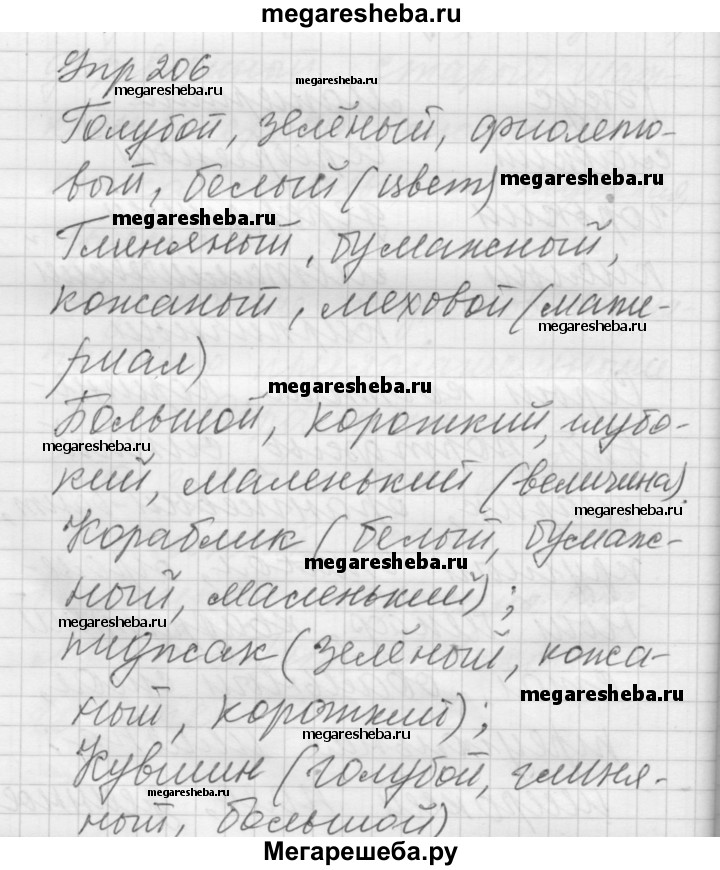 megaresheba.ru
Упр 206
megaresheba.ru
megaresheba.ru
Голубой, зелёный, фиолето-
вый, белый (цвет)
megaresheba.ru
megaresheba.ru
Глиняный, бумажный,
кожаный, меховой (мате-
megaresheba.ru
риал)
megaresheba.ru
Большой, короткий, глубо-
megaresheba.ru
кий, маленький (величина).
megaresheba.ru
Кораблик (белый, бумаж-
megaresheba.ru
ный, маленький);
megaresheba.ru
пиджак (зелёный, кожа-
megaresheba.ru
ный, короткий);
megaresheba.ru
Кувшин (голубой, глиня-
megaresheba.ru
ный, большой)
Мегарешеба.ру